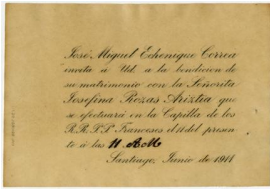 José Miguel Echenique Correa
invita á Ud. á la bendicion de
su matrimonio con la Señorita
Josefina Rozas Ariztia que
se efectuará en la Capilla de los
R.R.P.P. Franceses el 11 del presen
te á las 11 A.M.
Santiago, Junio de 1911